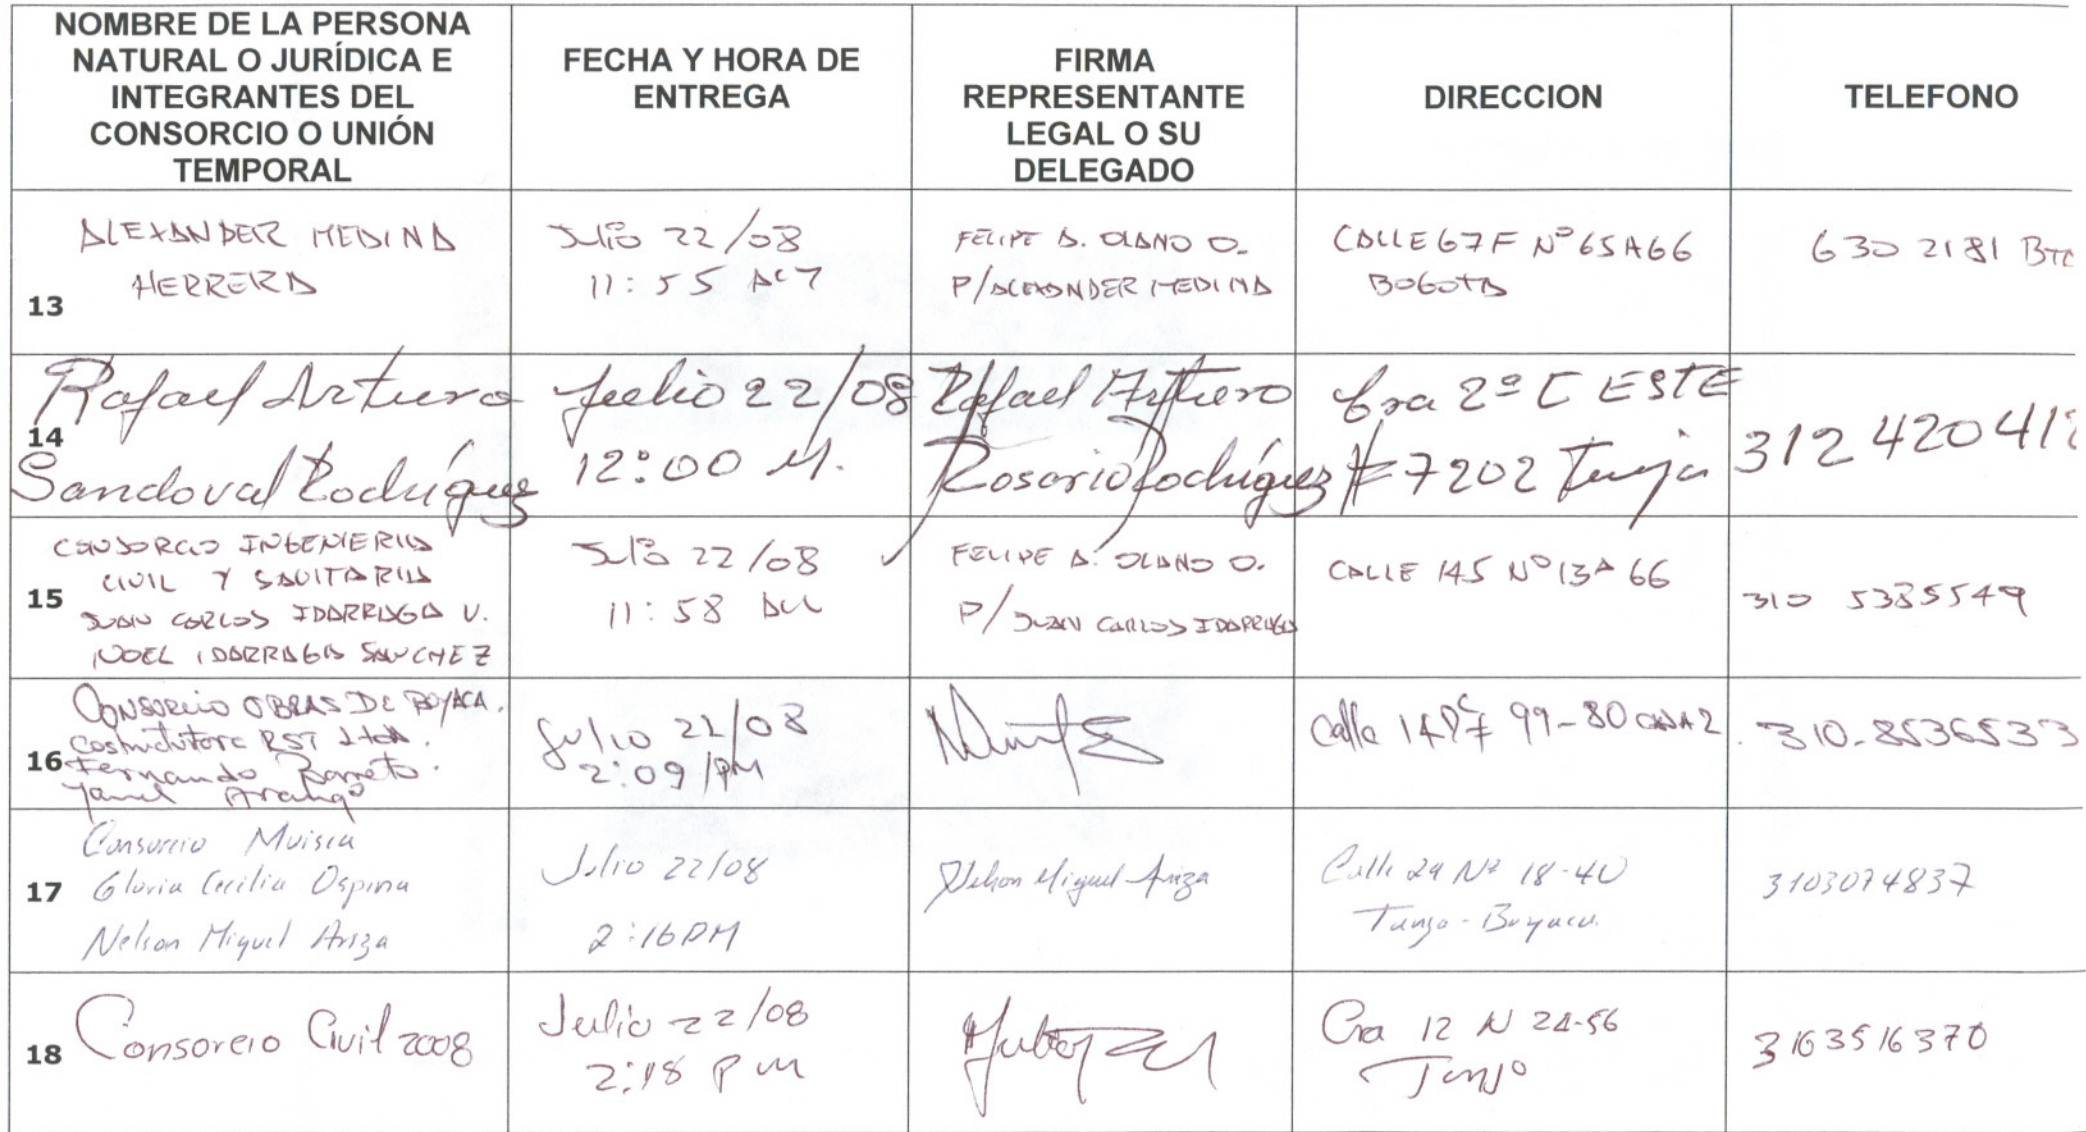 NOMBRE DE LA PERSONA
NATURAL O JURÍDICA E
INTEGRANTES DEL
CONSORCIO O UNIÓN
TEMPORAL
FECHA Y HORA DE
ENTREGA
FIRMA
REPRESENTANTE
LEGAL O SU
DELEGADO
DIRECCION
TELEFONO
13
ALEXANDER MEDINA
HERRERA
Julio 22/08
11:55
FELIPE A. OLANO O.
P/ALEXANDER MEDINA
CALLE 67F Nº 65A66
BOGOTA
630 2181
14
Rafael Arturo
Sandoval Rodríguez
Julio 22/08
12:00 M.
Rafael Arturo
Rodríguez
Cra 2ª C ESTE
# 7202 Tunja
312 42041
15
CONSORCIO INGENIERIA
CIVIL Y SANITARIA
JUAN CARLOS IDARRAGA V.
NOEL IDARRAGA SANCHEZ
Julio 22/08
11:58 AM
FELIPE A. OLANO O.
P/ JUAN CARLOS IDARRAGA
CALLE 145 Nº 13A 66
310 5385549
16
CONSORCIO OBRAS DE BOYACA.
RST Ltda.
Fernando Barreto.
Arango
Julio 22/08
2:09 PM
Calle 99-80 CASA 2.
310-8536533
17
Consorcio Muisca
Gloria Cecilia Ospina
Nelson Miguel Ariza
Julio 22/08
2:16 PM
Nelson Miguel Ariza
Calle 29 Nº 18-40
Tunja-Boyaca.
3103074837
18
Consorcio Civil 2008
Julio 22/08
2:18 pm
Cra 12 N 24-56
Tunja
3163516370